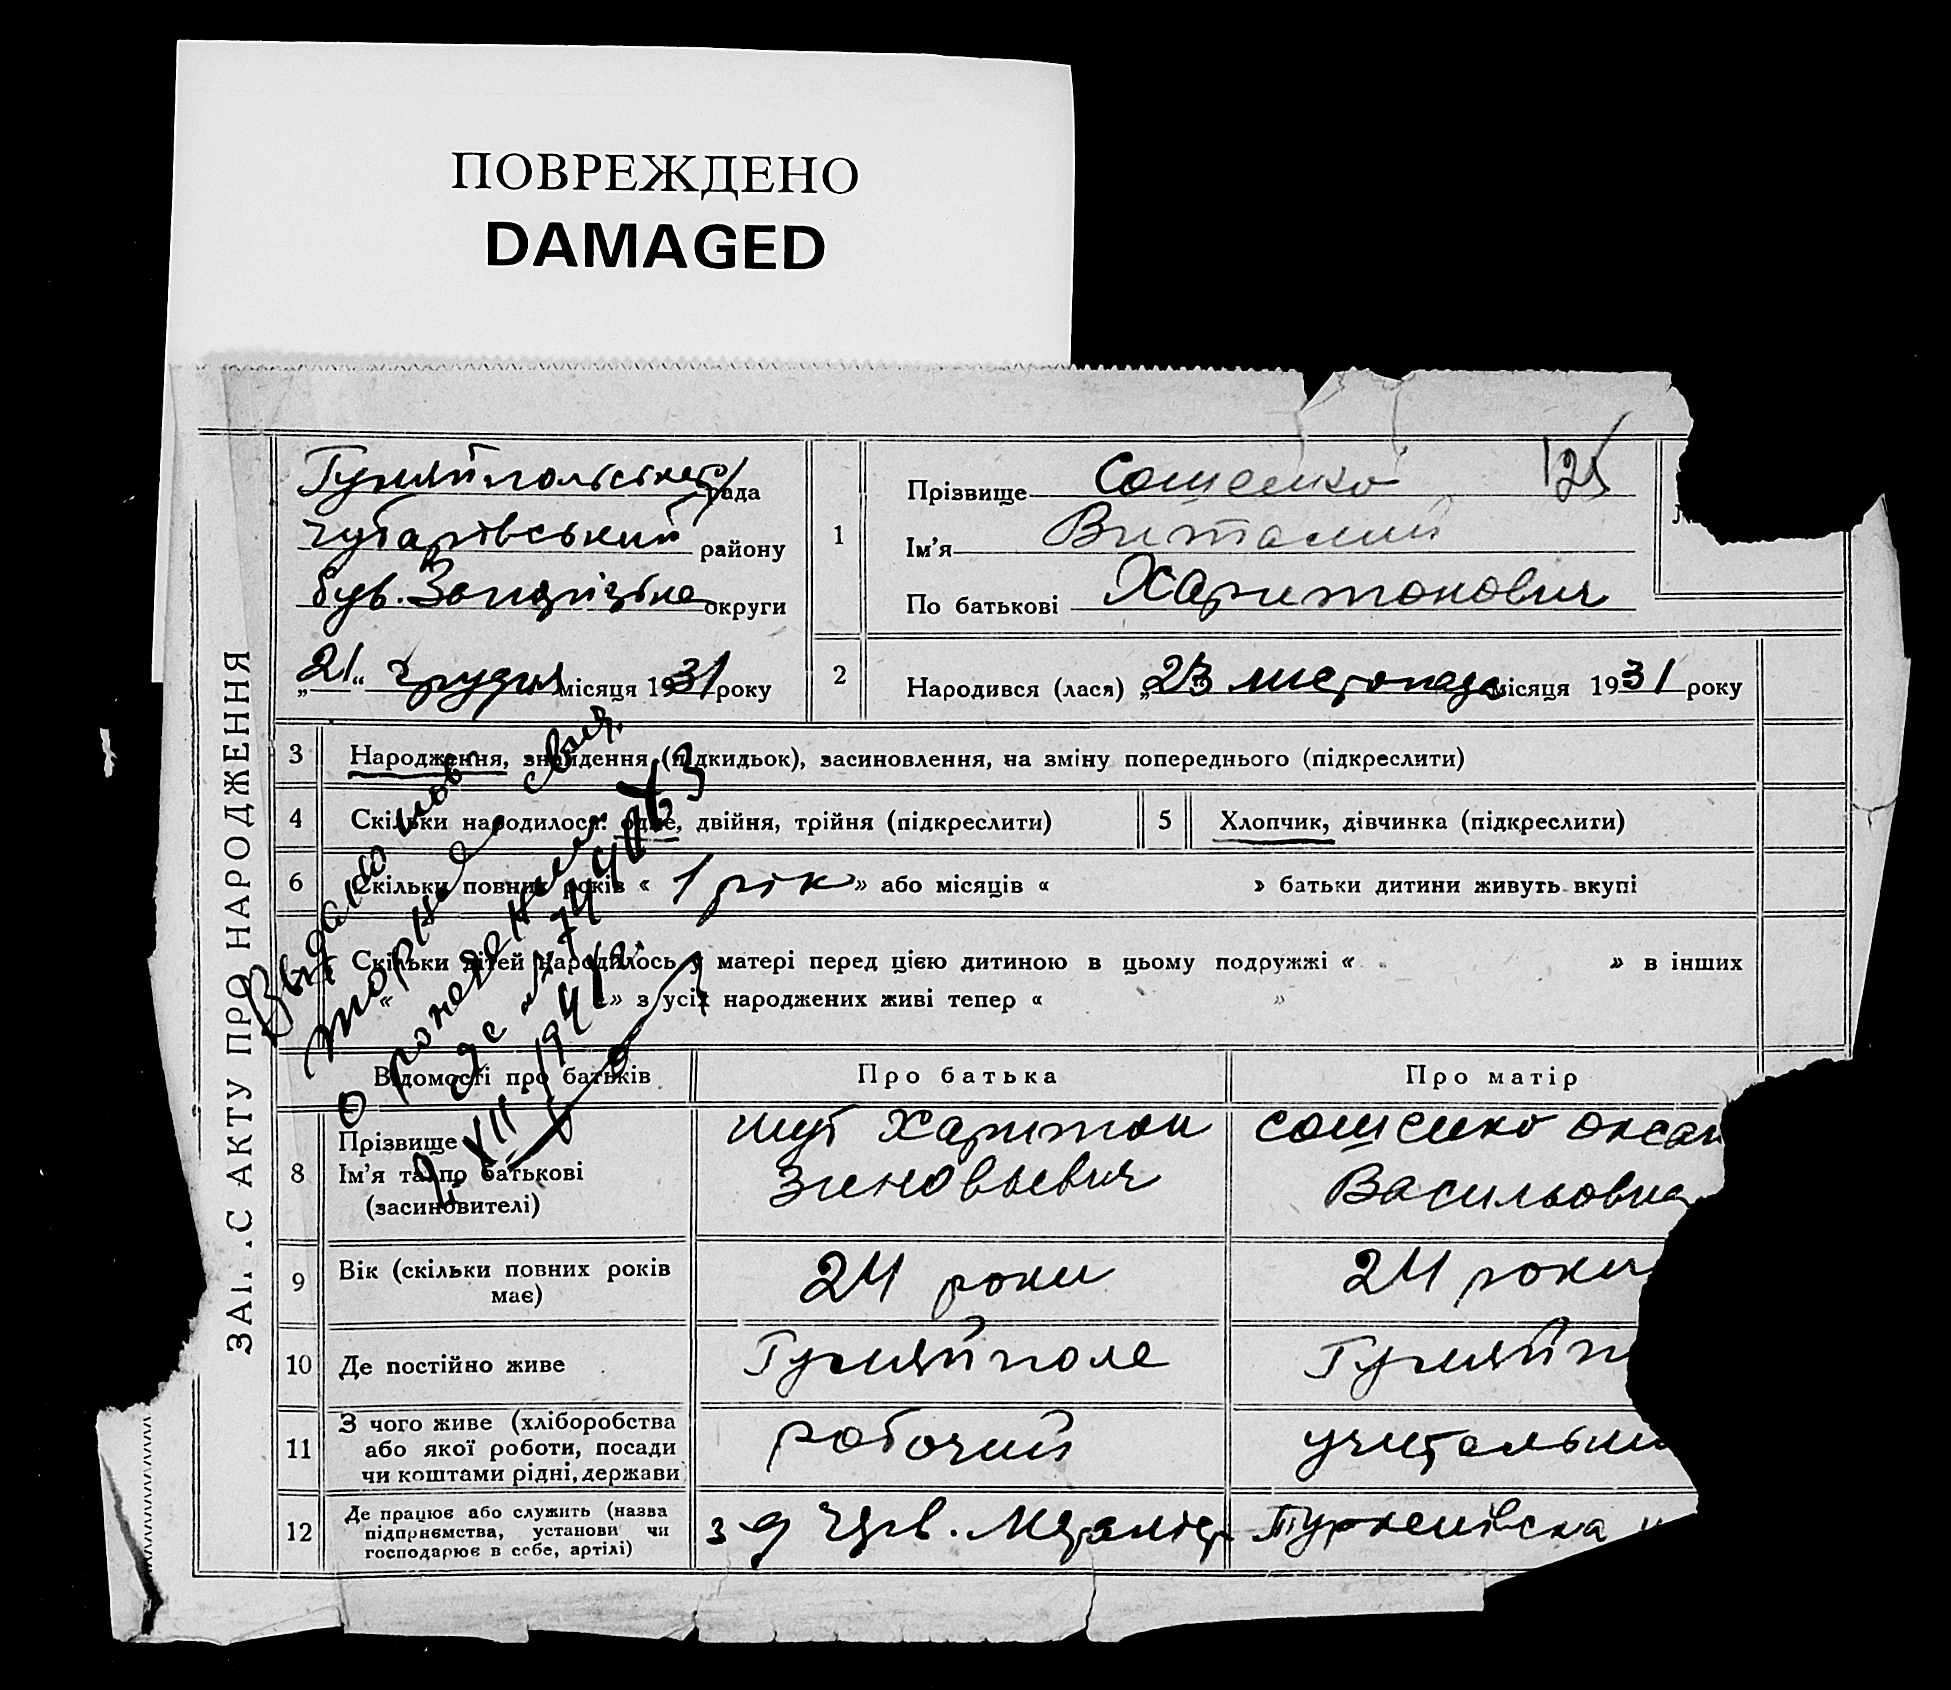 ПОВРЕЖДЕНО
DAMAGED
ЗАП.С АКТУ ПРО НАРОДЖЕННЯ
Гуляйпольська рада
Чубарівський району
був. Запорізька округи
„21“ грудня місяця 1931 року
1
Прізвище Сошенко 125
Ім'я Виталий
По батькові Харитонович
2
Народився (лася) „23 листопада місяця 1931 року
3 Народження, знайдення (підкидьок), засиновлення, на зміну попереднього (підкреслити)
4 Скільки народилося: одне, двійня, трійня (підкреслити)
5 Хлопчик, дівчинка (підкреслити)
6 Скільки повних років « 1 рік » або місяців « » батьки дитини живуть вкупі
Скільки дітей народилось у матері перед цією дитиною в цьому подружжі « » в інших
« » з усіх народжених живі тепер « »
Выдано пов
торное свид.
о рождении
1941
Відомості про батьків
Про батька
Про матір
8
Прізвище
Ім'я та по батькові
(засиновителі)
Шуб Харитон
Зиновьевич
Сошенко Оксан
Васильовна
9
Вік (скільки повних років
має)
24 роки
24 роки
10 Де постійно живе
Гуляйполе
Гуляйп
11
З чого живе (хліборобства
або якої роботи, посади
чи коштами рідні, держави
робочий
учительни
12
Де працює або служить (назва
підприємства, установи чи
господарює в себе, артілі)
з-д Черв. Металіст